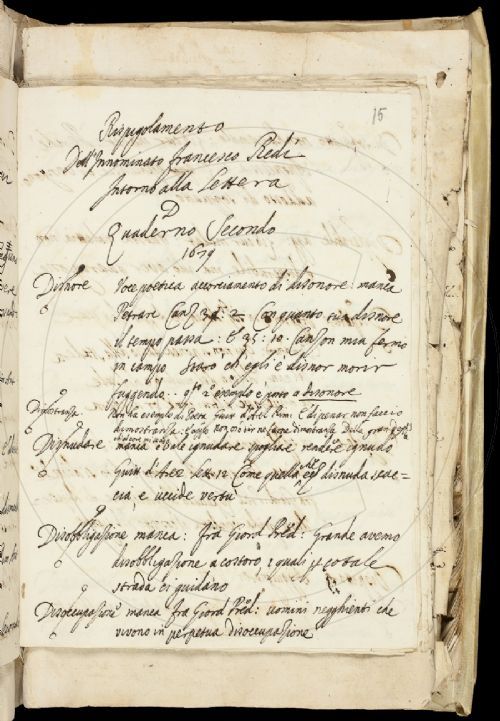 15
Rispigolamento
Dell'Innominato Francesco Redi
Intorno alla Lettera
D
Quaderno Secondo
1679
Disnore Voce poetica accorciamento di disonore: manca
Petrarc Canz 34: 2 Con quanto sua disnore
il tempo passa: E 35: 10. Canzon mia fermo
in campo Staro ch'egli è disnor morir
fuggendo. 2° esempio è posto a disonore
E di penar non faccio
dimostranza
Disnudare manca e vale ignudare spogliare rendere ignudo
Guitt d'Arez let 12 Come quella che disnuda scac=
cia e uccide vertu
Disobbligazione manca: Fra Giord Pred: Grande avemo
disobbligazione a costoro, i quali per cotale
strada ci guidano
Disoccupazione manca Fra Giord Pred: uomini neghienti che
vivono in perpetua disoccupazione